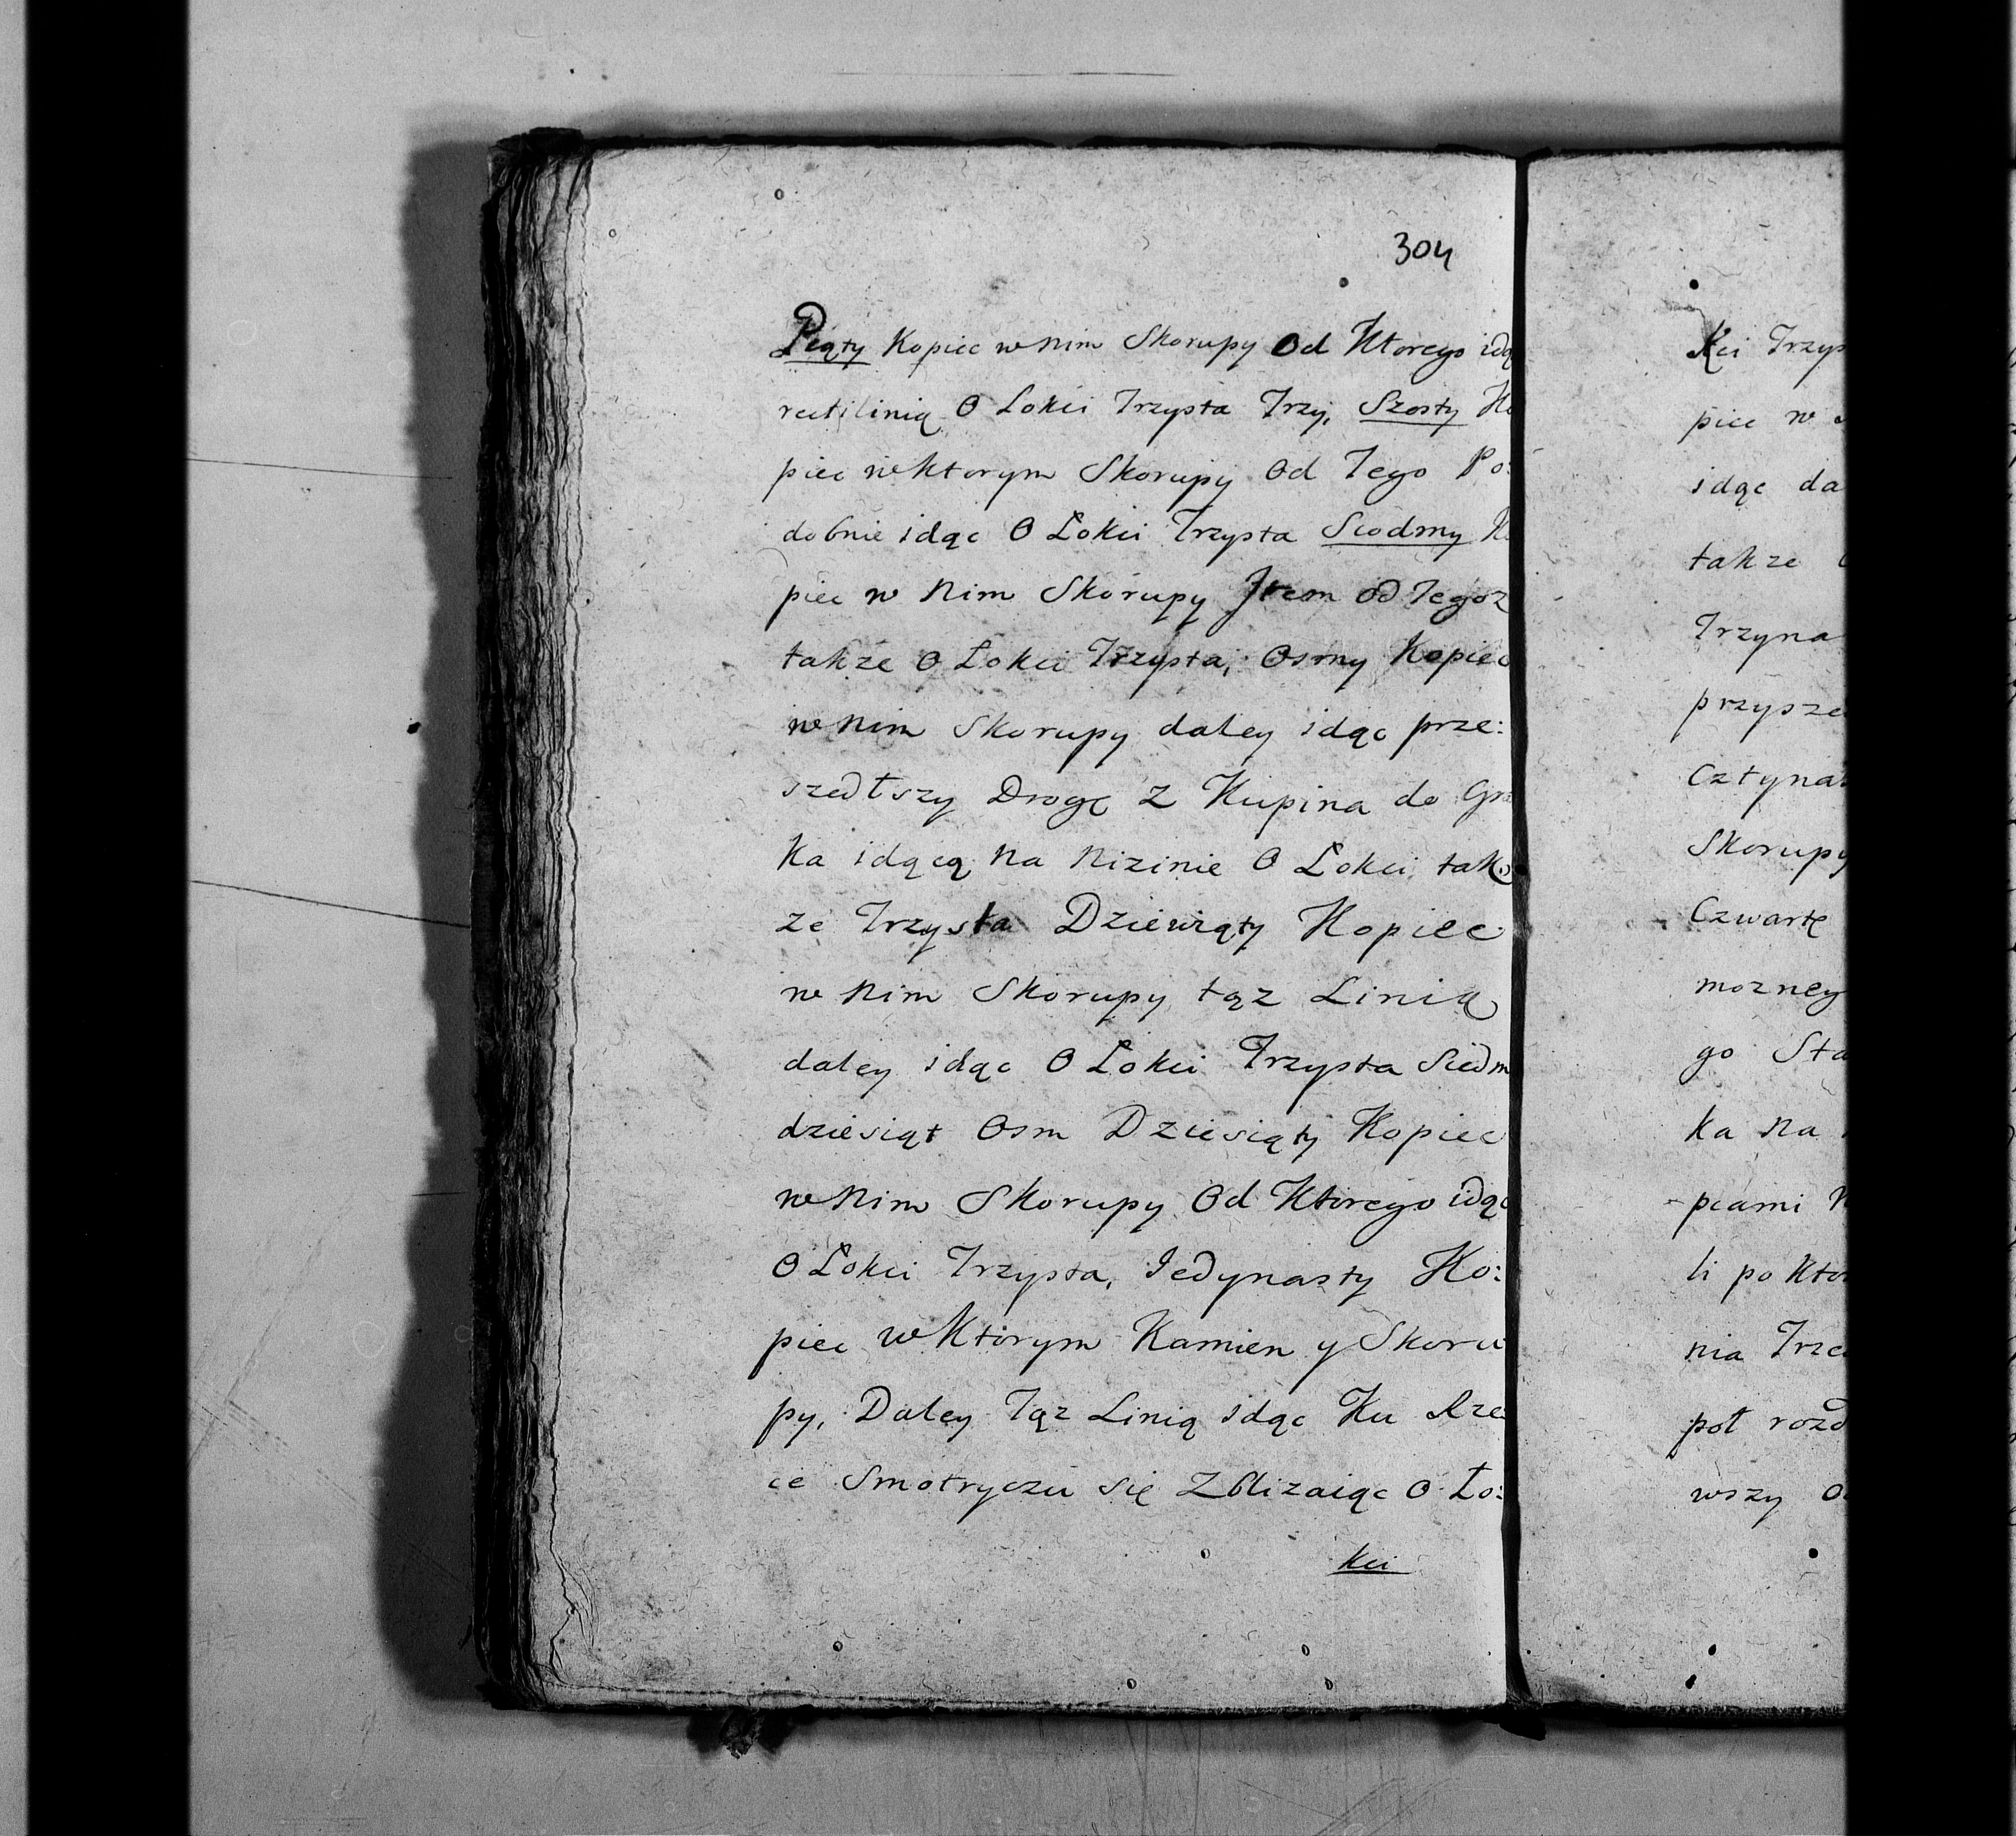 304
Piąty Kopiec w nim Skorupy Od Ktorego idą
rectilinią O Łokci Trzysta Trzy, Szosty Ko
piec w Ktorym Skorupy Od Tego Po:
dobnie idąc O Łokci Trzysta Siodmy K
piec w Nim Skorupy Item Od Tegoz
takze O Łokci Trzysta, Osmy Kopiec
w nim Skorupy daley idąc prze:
szedłszy Drogę Z Kupina do
ka idącą na Nizinie O Łokci tak
ze Trzysta Dziewiąty Kopiec
w Nim Skorupy tąz Linią
daley idąc O Łokci Trzysta Siedm
dziesiąt Osm Dziesiąty Kopiec
w Nim Skorupy Od Ktorego idąc
O Łokci Trzysta, Iedynasty Ko:
piec w Ktorym Kamien y Skoru
py, Daley Tąz Linią idąc Ku Rze
ce Smotryczu się Zblizaiąc O Ło:
kci
Kci Trzys
piec w
idąc da
takze
Trzyna
przysze
Cztyna
Skorupy
Czwartę
mozney
go Sta
ka na
pcami
li po Kto
nia Trze
poł rozd
wszy